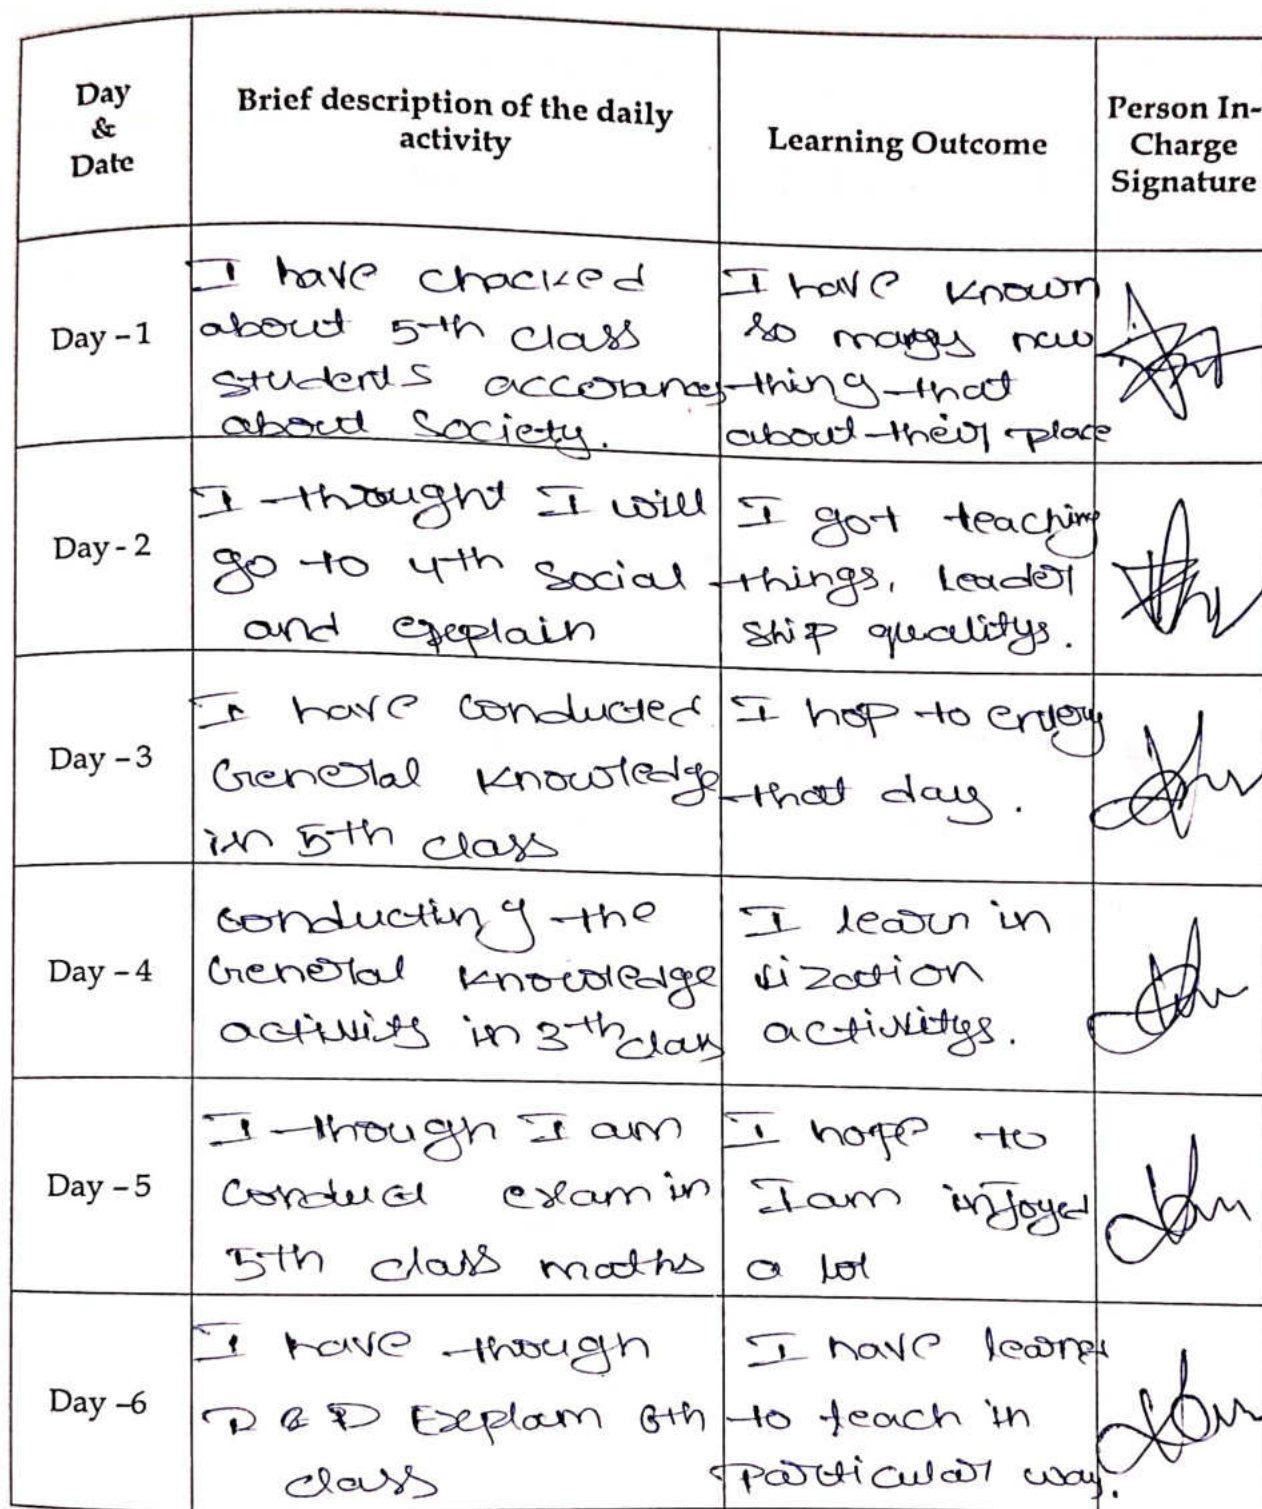 Day
&
Date
Brief description of the daily
activity
Learning Outcome
Person In-
Charge
Signature
Day - 1
I have chacked
about 5th class
students
about Society.
I have known
so many new
thing that
about their place
Day - 2
I thought I will
go to 4th social
and exeplain
I got teaching
things, leader
ship qualitys.
Day - 3
I have conducted
General knowledge
in 5th class
I hop to enjoy
that day.
Day - 4
conducting the
General knowledge
activity in 3th class
I learn in
activitys.
Day - 5
I though I am
conduct exam in
5th class maths
I hope to
I am injoyed
a lot
Day -6
I have though
Exeplam 6th
class
I have learne
to teach in
particular way.